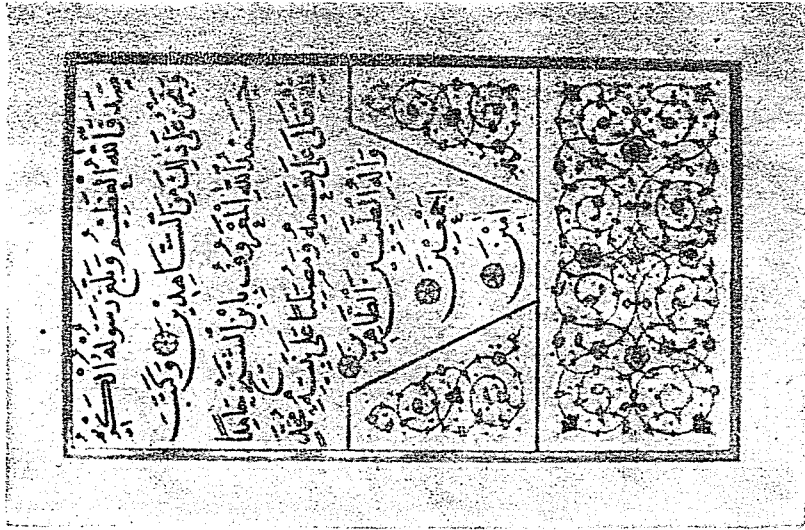 صدق الله العظيم وبلغ رسوله الكريم
ونحن على ذلك من الشاهدين وكتب
حمد الله المعروف بابن الشيخ حامدا
لله تعالى على نعمه ومصليا على نبيه محمد
وآله الطيبين الطاهرين
أجمعين
آمين